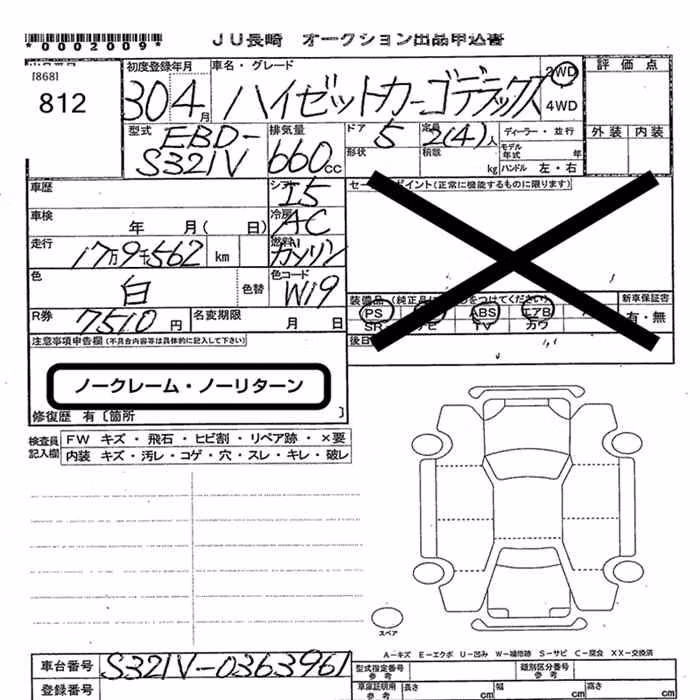 *0002009*
JU長崎 オークション出品申込書
[868]
812
初度登録年月
30 4月
車名・グレード
ハイゼットカーゴデラックス
2WD
4WD
評価点
外装 内装
型式
EBD-
S321V
排気量
660cc
ドア
5
定員
2(4)人
形状
積載
kg
ディーラー・並行
モデル年式 年
ハンドル 左・右
車歴
シフト
I5
セールスポイント(正常に機能するものに限ります)
車検
年 月( 日)
冷房
AC
走行
17万9千562 km
燃料
ガソリン
色
白
色替
色コード
W19
装備品(純正品に○をつけてください)
PS
ABS
エアB
SR
ナビ
TV
カワ
新車保証書
有・無
R券
7510円
名変期限
月 日
後日
注意事項申告欄(不具合内容等は具体的に記入して下さい)
ノークレーム・ノーリターン
修復歴 有〔箇所 〕
検査員記入欄
FW キズ・飛石・ヒビ割・リペア跡・×要
内装 キズ・汚レ・コゲ・穴・スレ・キレ・破レ
スペア
A-キズ E-エクボ U-凹み W-補修跡 S-サビ C-腐食 XX-交換済
車台番号
S321V-0363961
登録番号
型式指定番号
参考
類別区分番号
参考
車庫証明用
参考
長さ
cm
幅
cm
高さ
cm